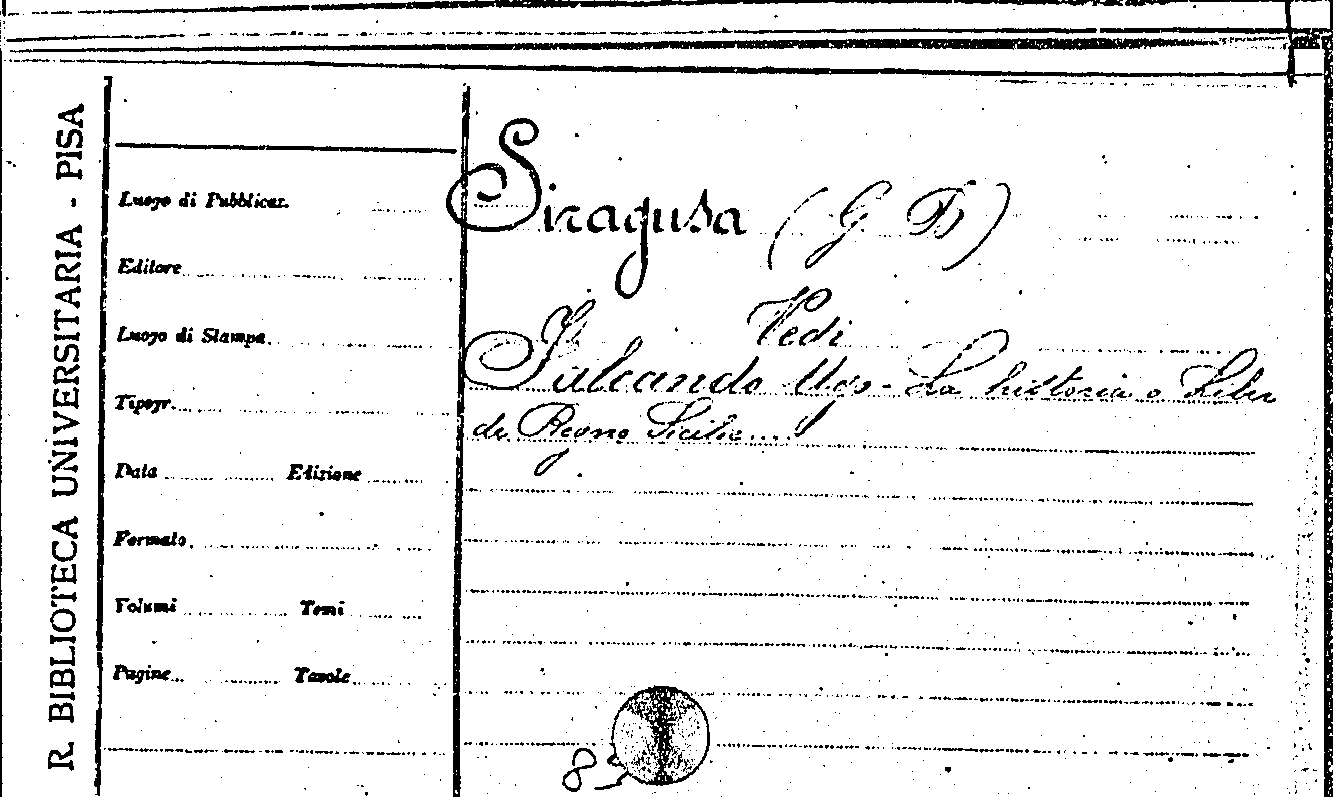 R. BIBLIOTECA UNIVERSITARIA - PISA
Luogo di Pubblicaz.
Editore
Luogo di Stampa
Tipogr.
Data Edizione
Formato
Volumi Tomi
Pagine Tavole
Siragusa (G B)
Vedi
Falcando Ugo - La historia o Liber
de Regno Sicilie....